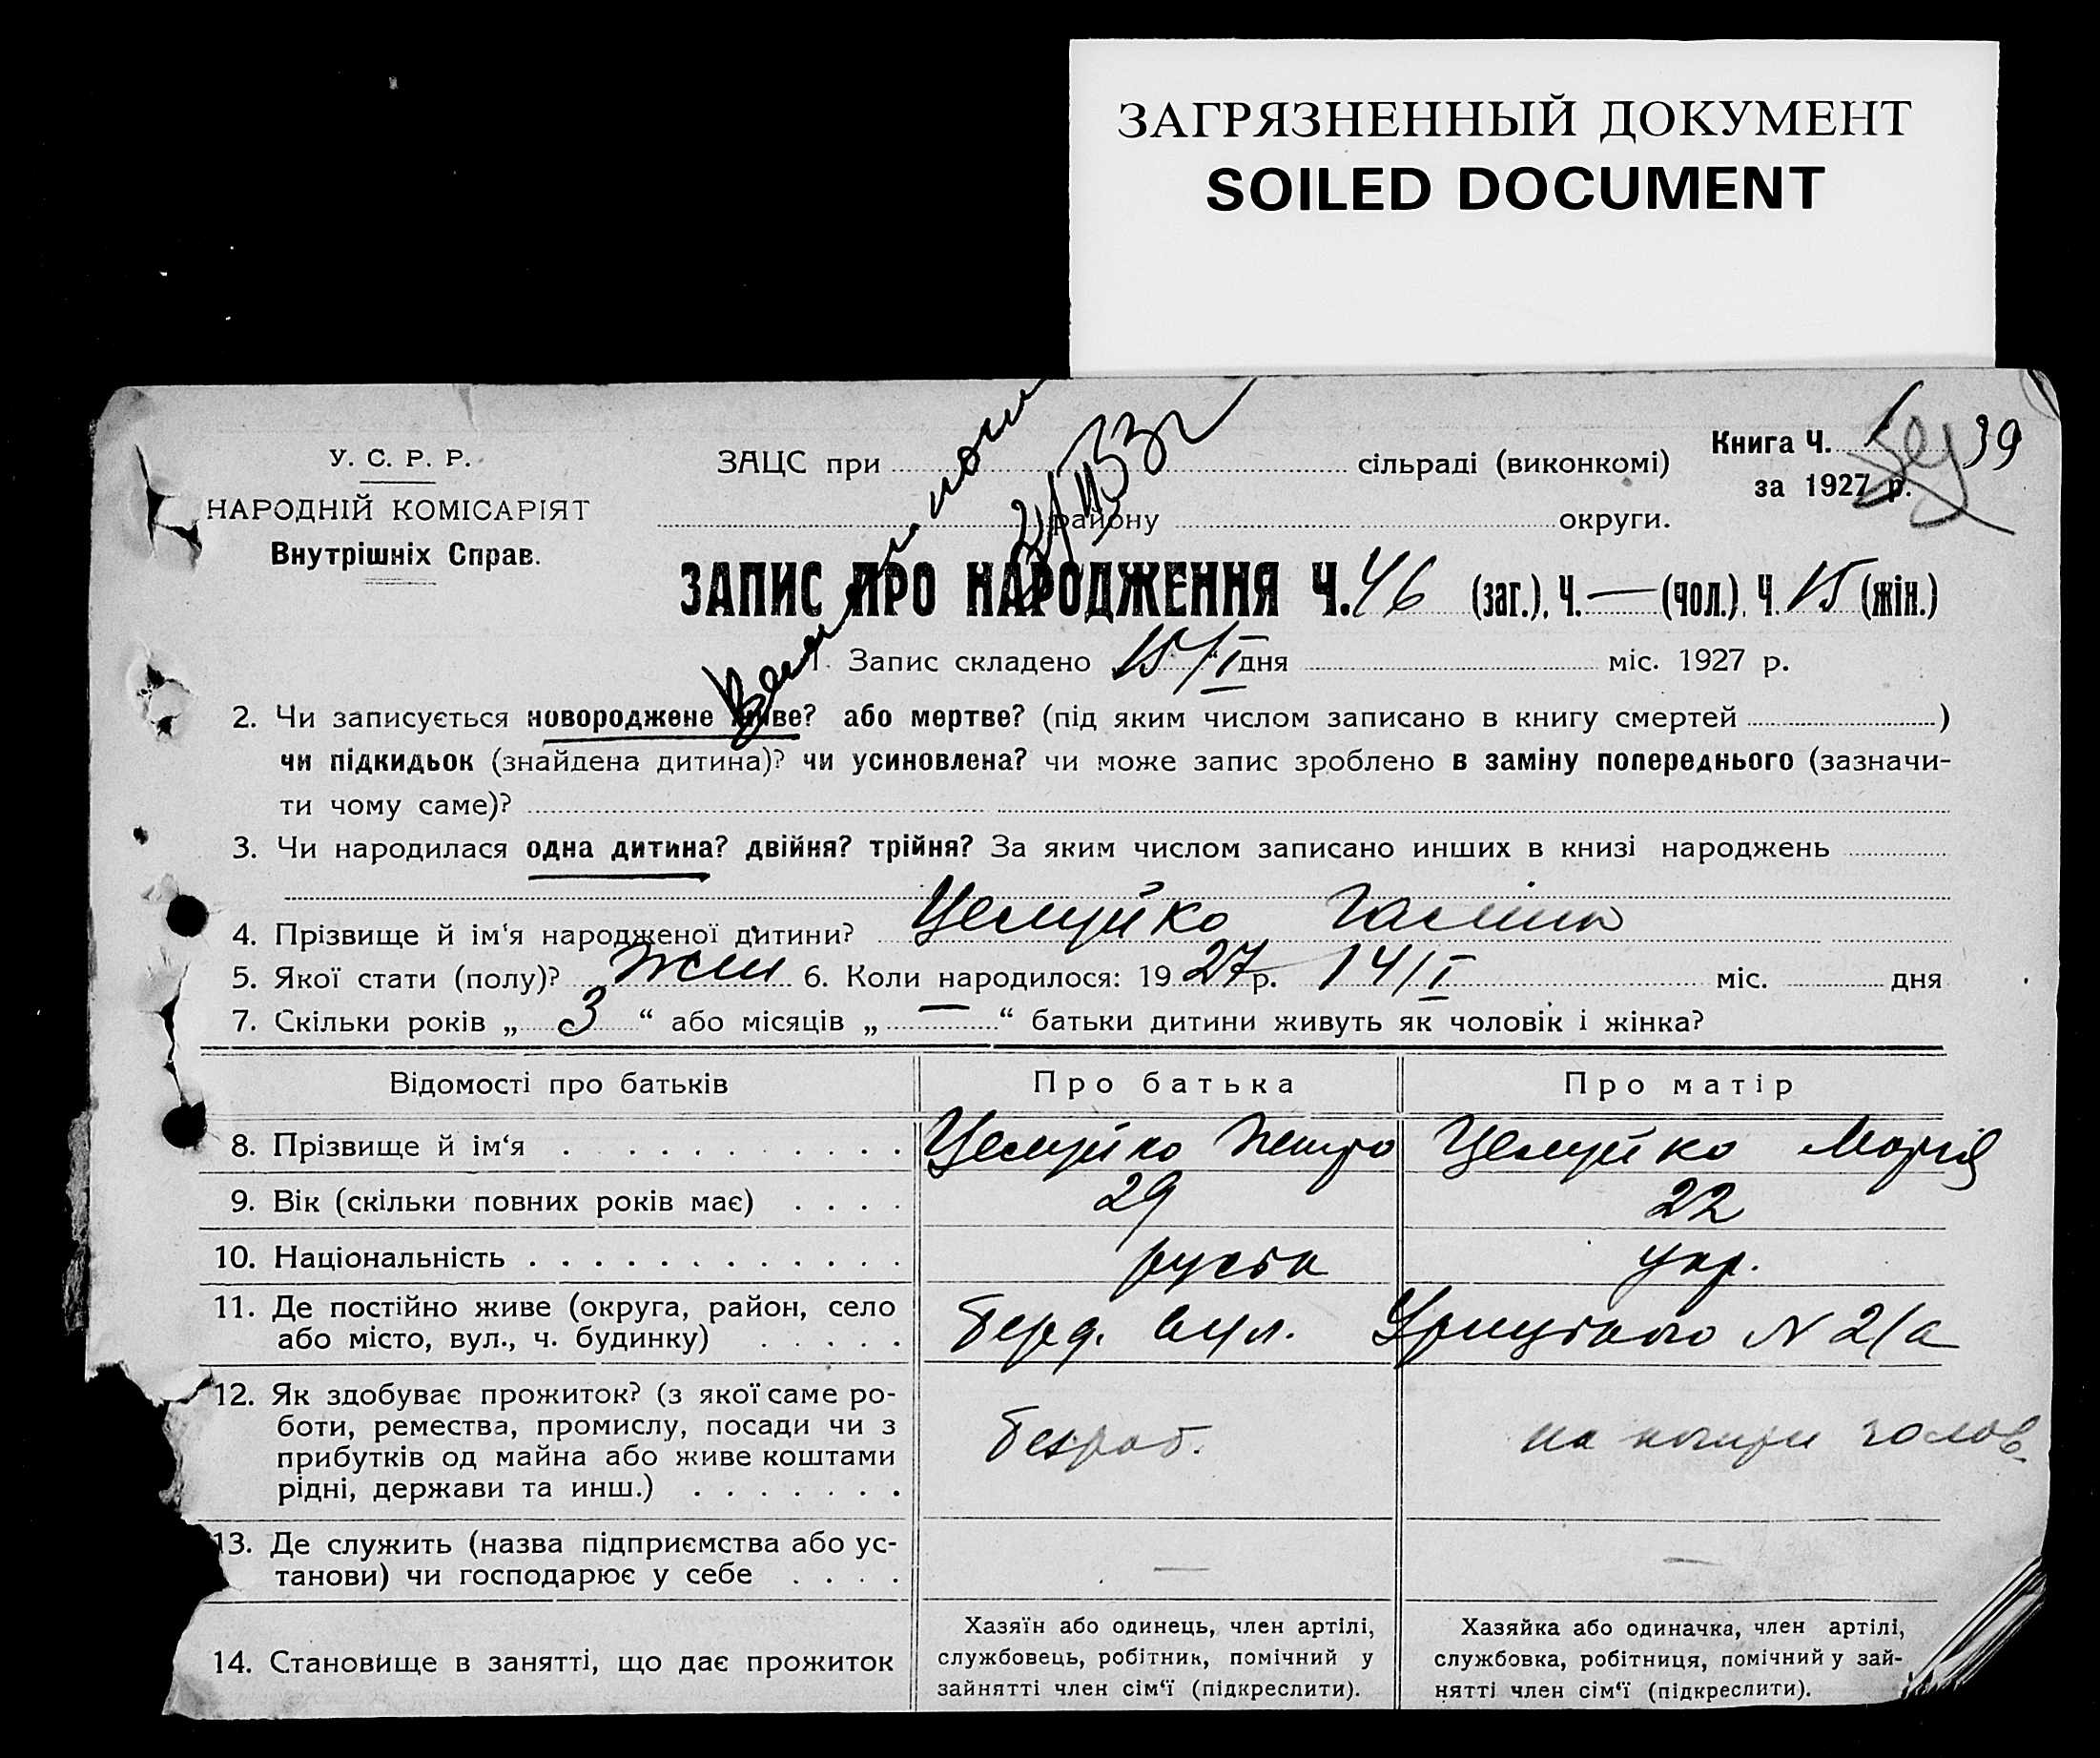 ЗАГРЯЗНЕННЫЙ ДОКУМЕНТ
SOILED DOCUMENT
У. С. Р. Р.
НАРОДНІЙ КОМІСАРІЯТ
Внутрішніх Справ.
ЗАЦС при сільраді (виконкомі)
району округи.
Книга Ч. 39
за 1927 р.
ЗАПИС ПРО НАРОДЖЕННЯ Ч. 46 (заг.), Ч. — (чол.), Ч. 15 (жін.)
1. Запис складено 15/I дня міс. 1927 р.
2. Чи записується новороджене живе? або мертве? (під яким числом записано в книгу смертей )
чи підкидьок (знайдена дитина)? чи усиновлена? чи може запис зроблено в заміну попереднього (зазначи-
ти чому саме)?
3. Чи народилася одна дитина? двійня? трійня? За яким числом записано инших в книзі народжень
4. Прізвище й ім'я народженої дитини? Целуйко Галина
5. Якої стати (полу)? жін 6. Коли народилося: 1927 р. 14/I міс. дня
7. Скільки років „ 3 “ або місяців „ — “ батьки дитини живуть як чоловік і жінка?
Відомості про батьків Про батька Про матір
8. Прізвище й ім‘я Целуйко Петро Целуйко Марія
9. Вік (скільки повних років має) 29 22
10. Національність укр.
11. Де постійно живе (округа, район, село
або місто, вул., ч. будинку) Берд. вул. Урицького N 2/а
12. Як здобуває прожиток? (з якої саме ро-
боти, ремества, промислу, посади чи з
прибутків од майна або живе коштами
рідні, держави та инш.) Безроб. на голов.
13. Де служить (назва підприємства або ус-
танови) чи господарює у себе — —
14. Становище в занятті, що дає прожиток
Хазяїн або одинець, член артілі,
службовець, робітник, помічний у
зайнятті член сім‘ї (підкреслити).
Хазяйка або одиначка, член артілі,
службовка, робітниця, помічний у зай-
нятті член сім‘ї (підкреслити).